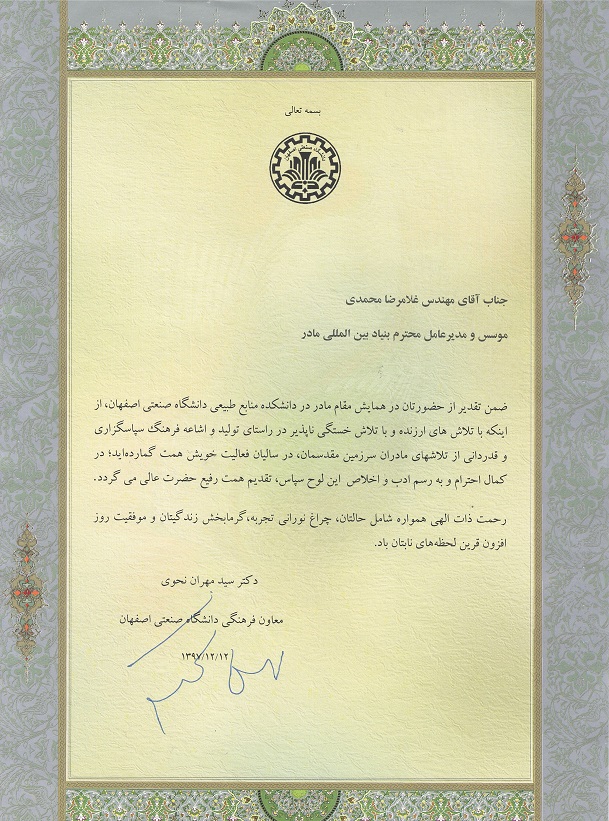 بسمه تعالی
دانشگاه صنعتی اصفهان
جناب آقای مهندس غلامرضا محمدی
موسس و مدیرعامل محترم بنیاد بین المللی مادر
ضمن تقدیر از حضورتان در همایش مقام مادر در دانشکده منابع طبیعی دانشگاه صنعتی اصفهان، از
اینکه با تلاش های ارزنده و با تلاش خستگی ناپذیر در راستای تولید و اشاعه فرهنگ سپاسگزاری
و قدردانی از تلاشهای مادران سرزمین مقدسمان، در سالیان فعالیت خویش همت گمارده‌اید؛ در
کمال احترام و به رسم ادب و اخلاص این لوح سپاس، تقدیم همت رفیع حضرت عالی می گردد.
رحمت ذات الهی همواره شامل حالتان، چراغ نورانی تجربه،گرمابخش زندگیتان و موفقیت روز
افزون قرین لحظه‌های نابتان باد.
دکتر سید مهران نحوی
معاون فرهنگی دانشگاه صنعتی اصفهان
۱۳۹۷/۱۲/۱۲